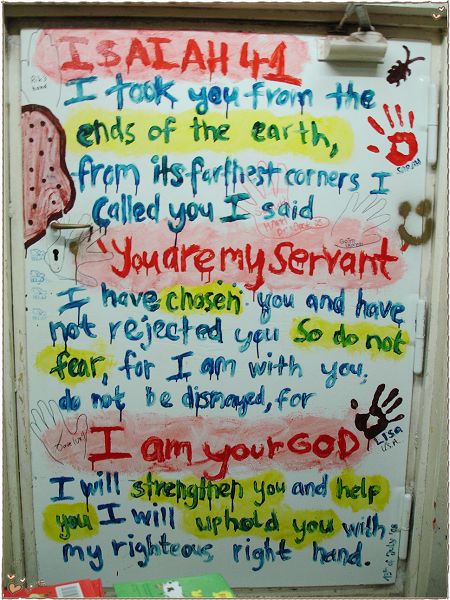 ISAIAH 41
I took you from the
ends of the earth,
from its farthest corners I
called you I said
'You are my servant'
I have chosen you and have
not rejected you So do not
fear, for I am with you;
do not be dismayed, for
I am your GOD
I will strengthen you and help
you I will uphold you with
my righteous right hand.
LISA
USA